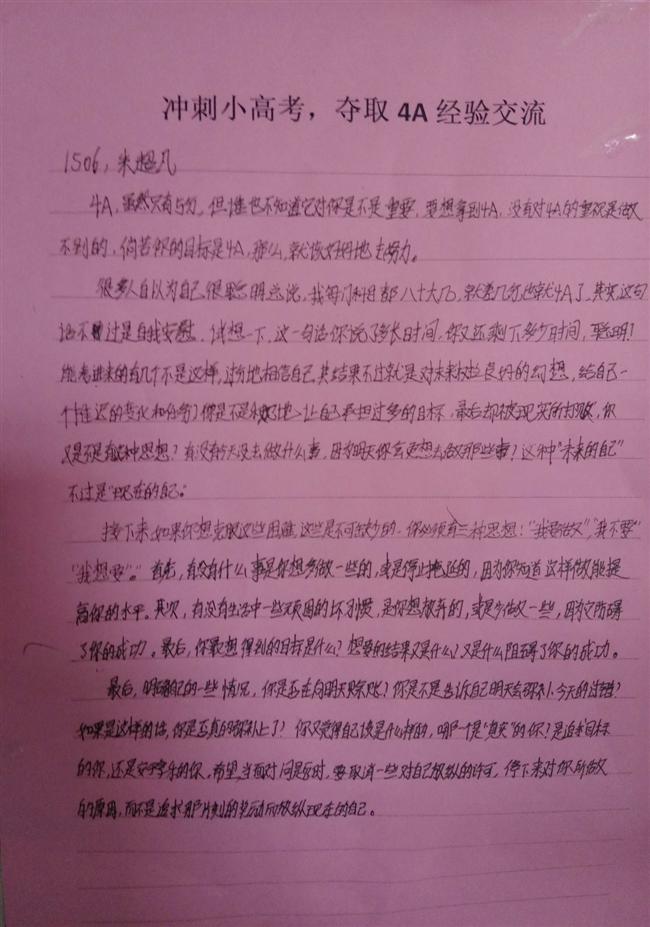 冲刺小高考，夺取4A经验交流
1506，朱超凡
4A，虽然只有5分，但谁也不知道它对你是不是重要，要想拿到4A，没有对4A的重视是做
不到的，倘若你的目标是4A，那么，就该好好地去努力。
很多人自以为自己很聪明，总说，我每门科目都八十大几，就差几分也就4A了，其实，这句
话不过是自我安慰，试想一下，这一句话你说了多长时间，你又还剩下多少时间，聪明！
能考进来的有几个不是这样，过分地相信自己，其结果不过就是对未来做些良好的幻想，给自己一
个推迟的变化和任务，你是不是地让自己承担过多的目标，最后却被现实所打败，你
又是不是有这种思想？有没有今天没去做什么事，因为明天你会更想去做那些事？这种"未来的自己"
不过是"现在的自己"
接下来，如果你想克服这些困难，这些是不可缺少的，你必须有三种思想："我要做"，"我不要"
"我想要"。首先，有没有什么事是你想多做一些的，或是停止拖延的，因为你知道这样做能提
高你的水平。其次，有没有生活中一些顽固的坏习惯，是你想放弃的，或是少做一些，因为它妨碍
了你的成功。最后，你最想得到的目标是什么？想要的结果又是什么？又是什么阻碍了你的成功。
最后，明确自己的一些情况，你是否在向明天赊账？你是不是告诉自己明天会弥补今天的过错？
如果是这样的话，你是否真的弥补上了？你又觉得自己该是什么样的，哪一个是"真实"的你？是追求目标
的你，还是的你，希望，当面对问题时，要取消一些对自己放纵的许可，停下来对你所做
的原因，而不是追求那片刻的而放纵现在的自己。